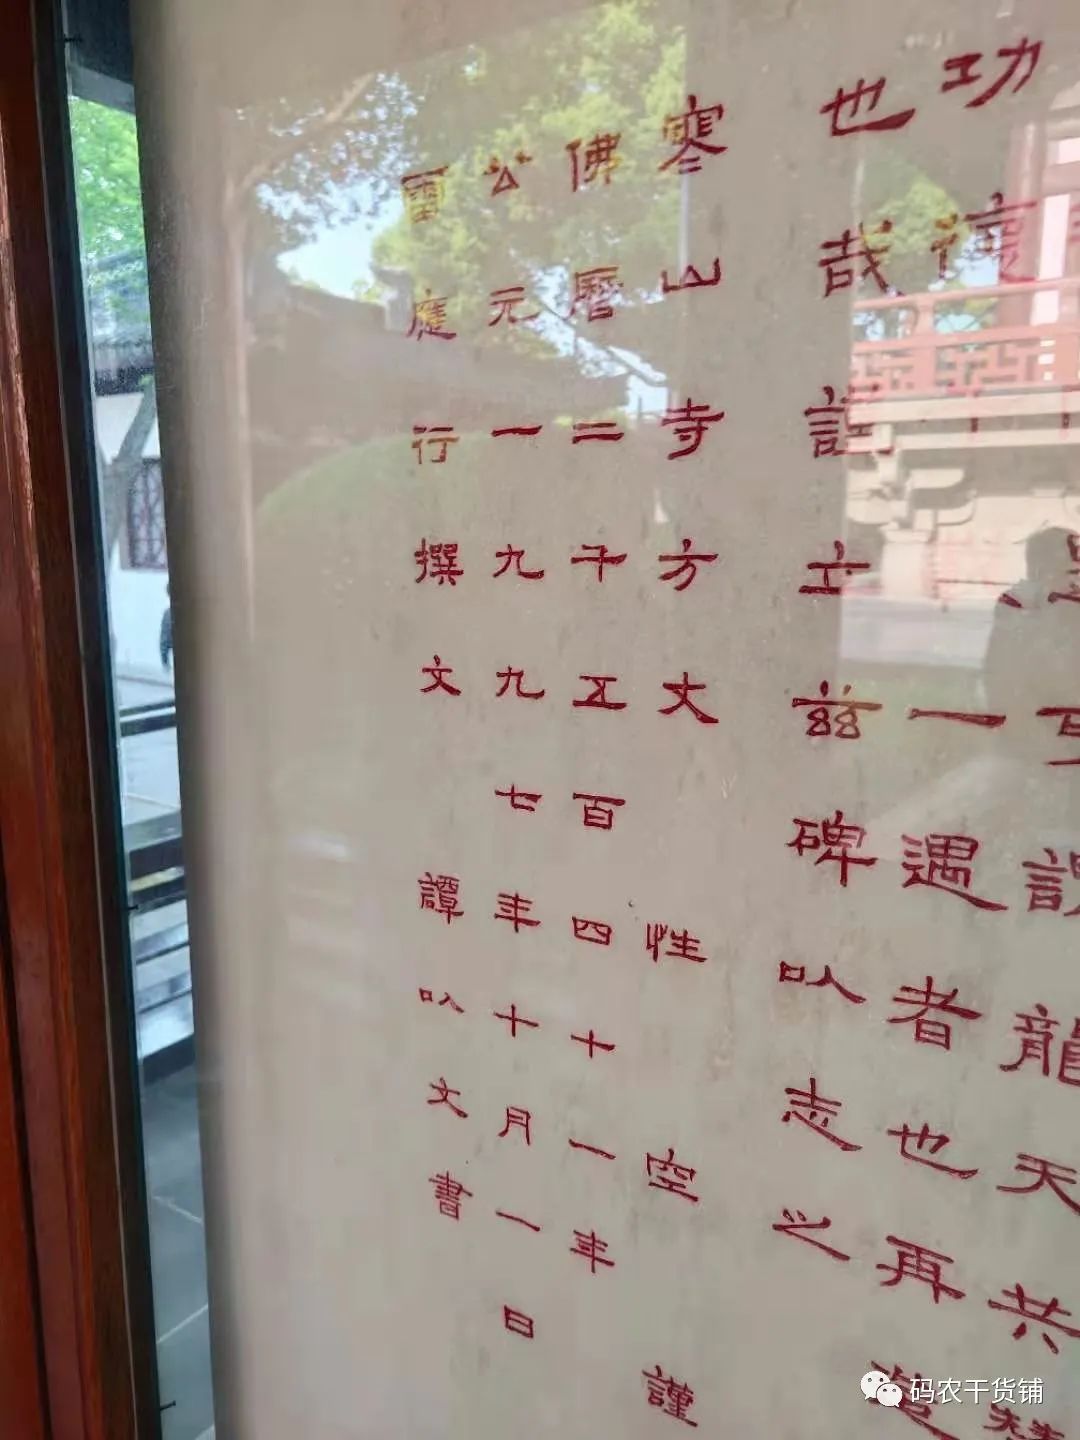 龍天共
功德一遇者也再
也哉立茲碑以志之
寒山寺方丈 性空 謹
佛曆二千五百四十一年
公元一九九七年十月一日
雷應行撰文 譚以文書
码农干货铺